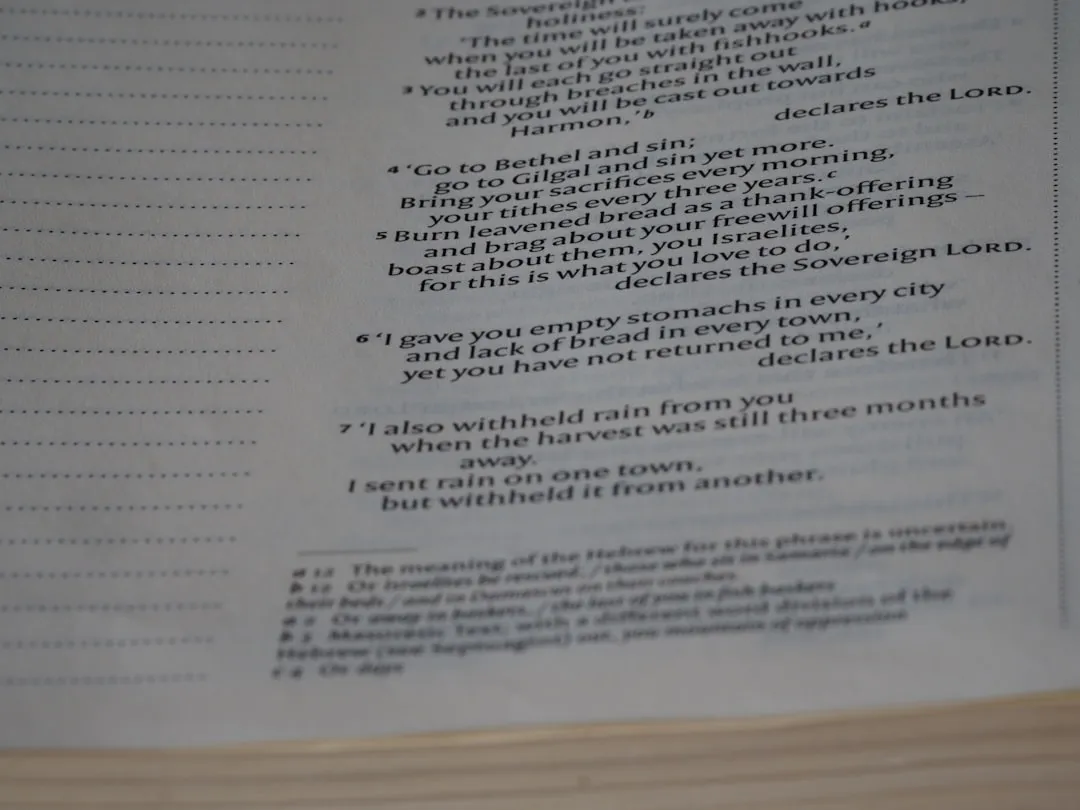 2 The Sovereign
holiness:
'The time will surely come
when you will be taken away with hooks,
the last of you with fishhooks. a
3 You will each go straight out
through breaches in the wall,
and you will be cast out towards
Harmon,' b
declares the LORD.
4 'Go to Bethel and sin;
go to Gilgal and sin yet more.
Bring your sacrifices every morning,
your tithes every three years. c
5 Burn leavened bread as a thank-offering
and brag about your freewill offerings –
boast about them, you Israelites,
for this is what you love to do,'
declares the Sovereign LORD.
6 'I gave you empty stomachs in every city
and lack of bread in every town,
yet you have not returned to me,'
declares the LORD.
7 'I also withheld rain from you
when the harvest was still three months
away.
I sent rain on one town,
but withheld it from another.
a 12 The meaning of the Hebrew for this phrase is uncertain.
b 12 Or Israelites be rescued, / those who sit in Samaria / on the edge of
their beds / and in Damascus on their couches.
a 2 Or away in baskets, / the last of you in fish baskets
b 3 Masoretic Text; with a different word division of the
Hebrew (see Septuagint) out, you mountain of oppression
c 4 Or days